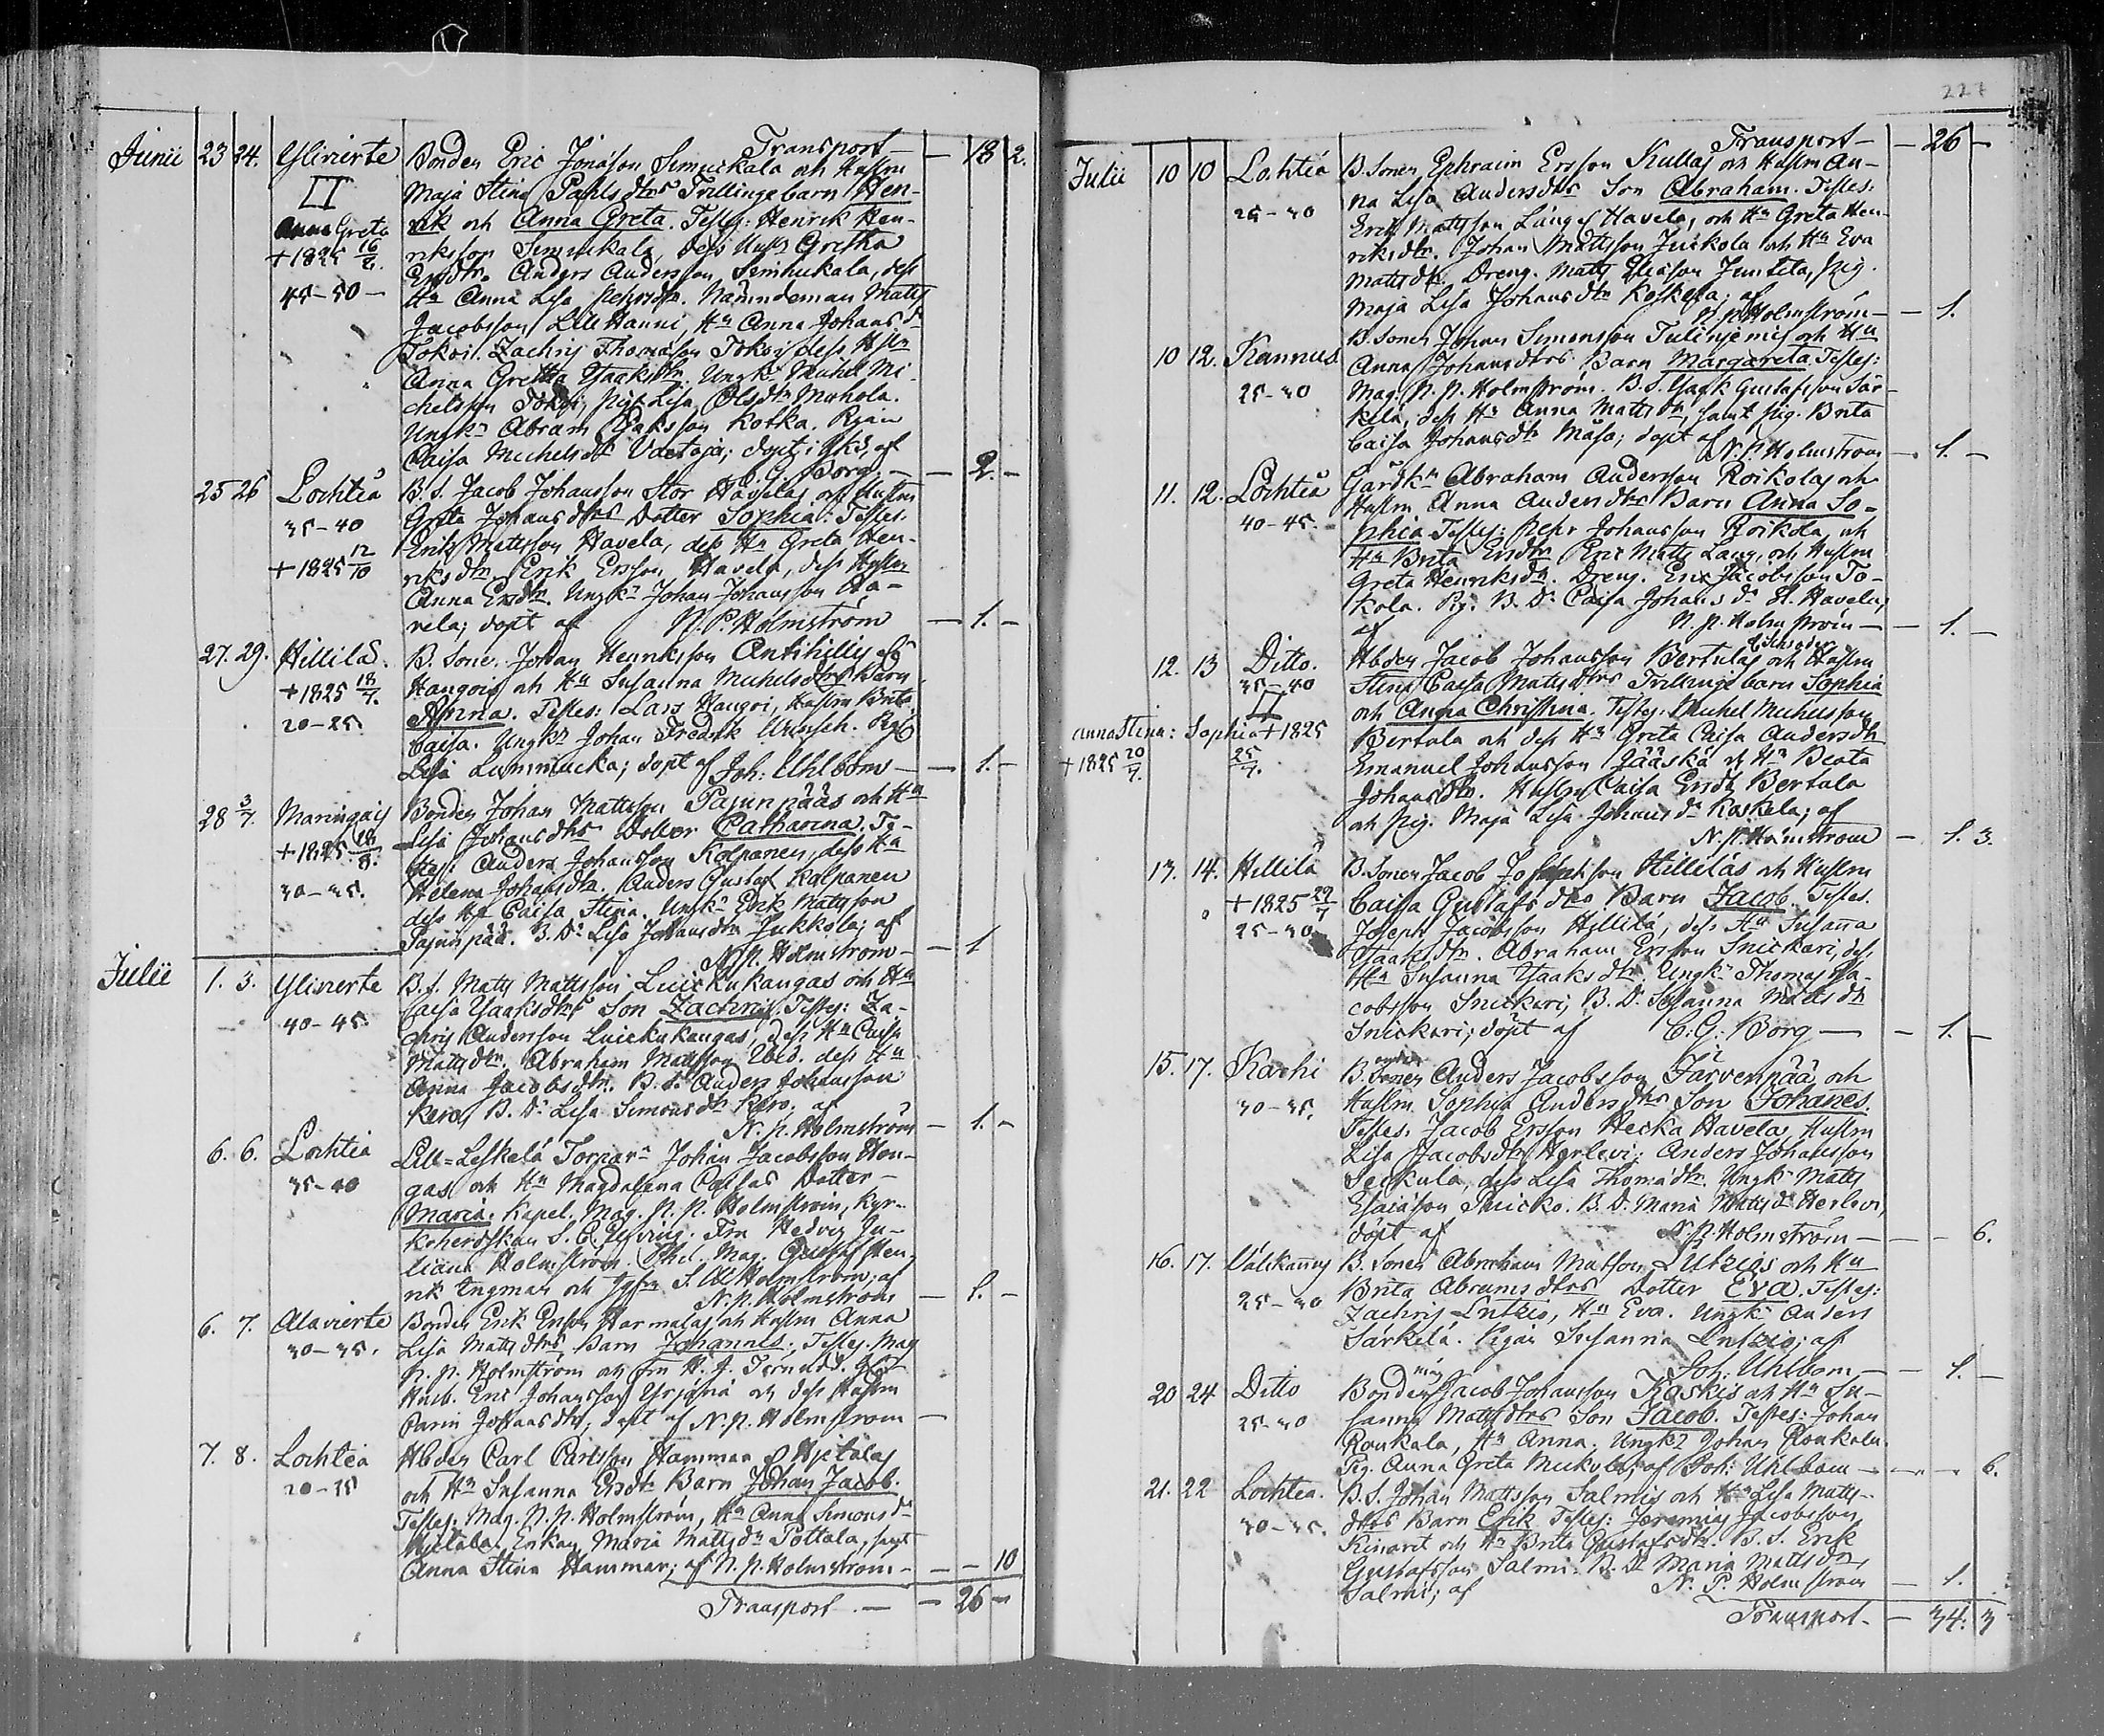 Transport — — 18 2.
Junii 23 24. Ylivierte Bonden Eric Jonasson Simuckala och Hustru
II Maja Stina Pahlsdtrs Tvillingebarn Hen-
Anna Greta rik och Anna Greta. Testes: Henrik Hen-
+ 1825 16/8. riksson Simukala, dess Hust Gretha
Ersdtr. Anders Andersson Simuckala, dess
45-50 — Hu Anna Lisa Pehrsdtr. Nämndeman Matts
Jacobsson Lill Hanni, Hu Anna Johansdr
Tokoi. Zachris Thomasson Tokoi, dess Hstu
Anna Gretha Isaksdtr. Ungkn Michel Mi-
chelsson Tokoi, Pig. Lisa Olsdtr Muhola.
Ungkn Abram Isaksson Kotka. Pigan
Caisa Michelsdr ; döpt i Kkn, af
C. G. Borg. — — 2. —
25 26 Lochteå B. S. Jacob Johansson Stor Havelas och Hustru
35-40 Greta Johansdtrs Dotter Sophia. Testes.
Erik Mattsson Havela, dess Hu Greta Hen-
+ 1825 12/10 riksdtr. Erik Ersson Havela, dess Hustru
Anna Ersdtr. Ungkn Johan Johansson Ha-
vela; döpt af N. P. Holmström — 1. —
27. 29. Hillilä. B. Sone. Johan Henriksson Antihillis
+ 1825 18/7. Haugois och Hu Susanna Michelsdtrs Barn
20-25. Anna. Testes: Lars Haugoi, Hustru Brita
Caisa. Ungkn Johan Fredrik . Pig.
Lisa Lummucka; döpt af Joh: Uhlbom — — 1. —
28 3/7. Maringais Bonden Johan Mattsson Pajunpääs och Hu
+ 1825 18/8. Lisa Johansdtrs Dotter Catharina. Te-
stes: Anders Johansson Kolpanen, dess Hu
30-35. Helena Johansdtr. Anders Gustaf Kalpanen
dess Hu Caisa Stina. Ungkn Erik Mattsson
Pajunpää. B. Dr Lisa Johansdtr Jukkola; af
N. P. Holmström — — 1
Julii 1. 3. Ylivierte B. S. Matts Mattsson Luickukangas och Hu
40-45. Caisa Isaaksdtrs Son Zachris. Testes: Za-
chris Andersson Luickukangas, dess Hu Caisa
Mattsdtr. Abraham Mattsson . dess Hu
Anna Jacobsdtr. B. S. Anders Johansson
Kero, B. Dr Lisa Simonsdtr Kero. af
N. P. Holmström — 1. —
6. 6. Lochteå Lill-Leskelä Torparn Johan Jacobsson Hon-
35-40 gas och Hu Magdalena Dotter —
Maria. Kapel. Mag. N. P. Holmström, Kyr-
koherdskan S. C. . Fru Hedvig Ju-
liana Holmström. Phil. Mag. Gustaf Hen-
rik Engman och S. Holmström; af
N. P. Holmström — 1. —
6. 7. Alavierte Bonden Erik Ersson Harmalas och Hustru Anna
30-35. Lisa Mattsdtrs Barn Johannes. Testes. Mag
N. P. Holmström och Fru H. J.
Husb. Eric Johansson Yrjänä och dess Hustru
Carin Johansdtr; döpt af N. P. Holmström —
7. 8. Lochteå Hbden Carl Carlsson Hammar Hietalas
20-25 och Hu Susanna Ersdtr Barn Johan Jacob.
Testes: Mag. N. P. Holmström, Hu Anna Simonsdr
Hietala. Enkan Maria Mattsdtr Pottala, samt
Anna Stina Hammar; af N. P. Holmström — — — 10
Transport — — 26 —
227
Transport — — 26 —
Julii 10 10 Lochteå B. Sonen Ephraim Ersson Kullas och Hustru An-
na Lisa Andersdtrs Son Abraham. Testes:
25-30 Erik Mattsson Lång Havela, och Hu Greta Hen-
riksdtr. Johan Mattsson Juckola och Hu Eva
Mattsdtr. Dreng. Matts Junttila, Pig.
Maja Lisa Johansdtr Koskela; af
N. P. Holmström — — 1.
10 12. Kannus B. Sonen Johan Simonsson Tulinjemis och Hu
Anna Johansdtrs Barn Margareta. Testes:
25-30 Mag. N. P. Holmström. B. S. Isack Gustafsson Sär-
kelä, dess Hu Anna Mattsdtr, samt Pig. Brita
Caisa Johansdtr Måsa; döpt af N. P. Holmström — 1. —
11. 12. Lochteå Gårdkn Abraham Andersson Roikolas och
40-45. Hustru Anna Andersdtrs Barn Anna So-
phia Testes: Pehr Johansson Roikola, och
Hu Brita Ersdtr. Eric Matts Lång, och Hustru
Greta Henriksdtr. Dreng. Eric Jacobsson To-
kola. Pig. B. Dr Caisa Johansdr St. Havela,
af N. P. Holmström — — 1. —
12. 13 Ditto. Hbden Jacob Johansson Bertulas och Hustru
35-40 Stina Caisa Mattsdtrs Tvillinge barn Sophia
II och Anna Christina. Testes: Michel Michelsson
Anna Stina: Sophia + 1825 Bertula och dess Hu Greta Caisa Andersdtr
+ 1825 20/7. 25/7. Emanuel Johansson Jääskä och Hu Beata
Johansdtr. Hustru Caisa Ersdtr Bertula
och Pig. Maja Lisa Johansdr Koskela; af
N. P. Holmström — 1. 3.
13. 14. Hillilä B. Sonen Jacob Josephsson Hilliläs och Hustru
+ 1825 29/7 Caisa Gustafsdtrs Barn Jacob. Testes.
25-30 Joseph Jacobsson Hillilä, dess Hu Susanna
Isaaksdtr. Abraham Ersson Snickari, dess
Hu Susanna Isaaksdtr. Ungkn Thomas Ja-
cobsson Snickari; B. Dr Susanna Mattsdtr
Snickari; döpt af C. G. Borg — — 1. —
15. 17. Karhi Bonden Anders Jacobsson Järvenpää och
30-35. Hustru Sophia Andersdtrs Son Johanes.
Testes. Jacob Ersson Hecka Havela, Hustru
Lisa Jacobsdtr Herlevi; Anders Johansson
Seikula, dess Lisa Thomædtr. Ungkn Matts
Esaiasson . B. D. Maria Mattsdr Herlevi,
döpt af N. P. Holmström — — — 6.
16. 17. Välikannus B. Sonen Abraham Matsson Lutzigs och Hu
25-30 Brita Abramsdtrs Dotter Eva. Testes:
Zachris Lutzio, Hu Eva. Ungkn Anders
Särkelä. Pigan Susanna Lutzio; af
Joh. Uhlbom — — 1. —
20 24 Ditto Bonden Jacob Johansson Koskis och Hu Su-
25-30 sanna Mattsdtrs Son Jacob. Testes: Johan
Roukala, Hu Anna. Ungkn Johan Roukala.
Pig. Anna Greta ; af Joh: Uhlbom — — — 6.
21. 22 Lochteå. B. S. Johan Mattsson Salmis och Hu Lisa Matts-
30-35. dtrs Barn Erik Testes: Jeremias Jacobsson
Kinarit och Hu Brita Gustafsdtr. B. S. Erik
Gustafsson Salmi. B. Dr Maria Mattsdtr
Salmi; af N. P. Holmström — 1.
Transport — — 34. 3